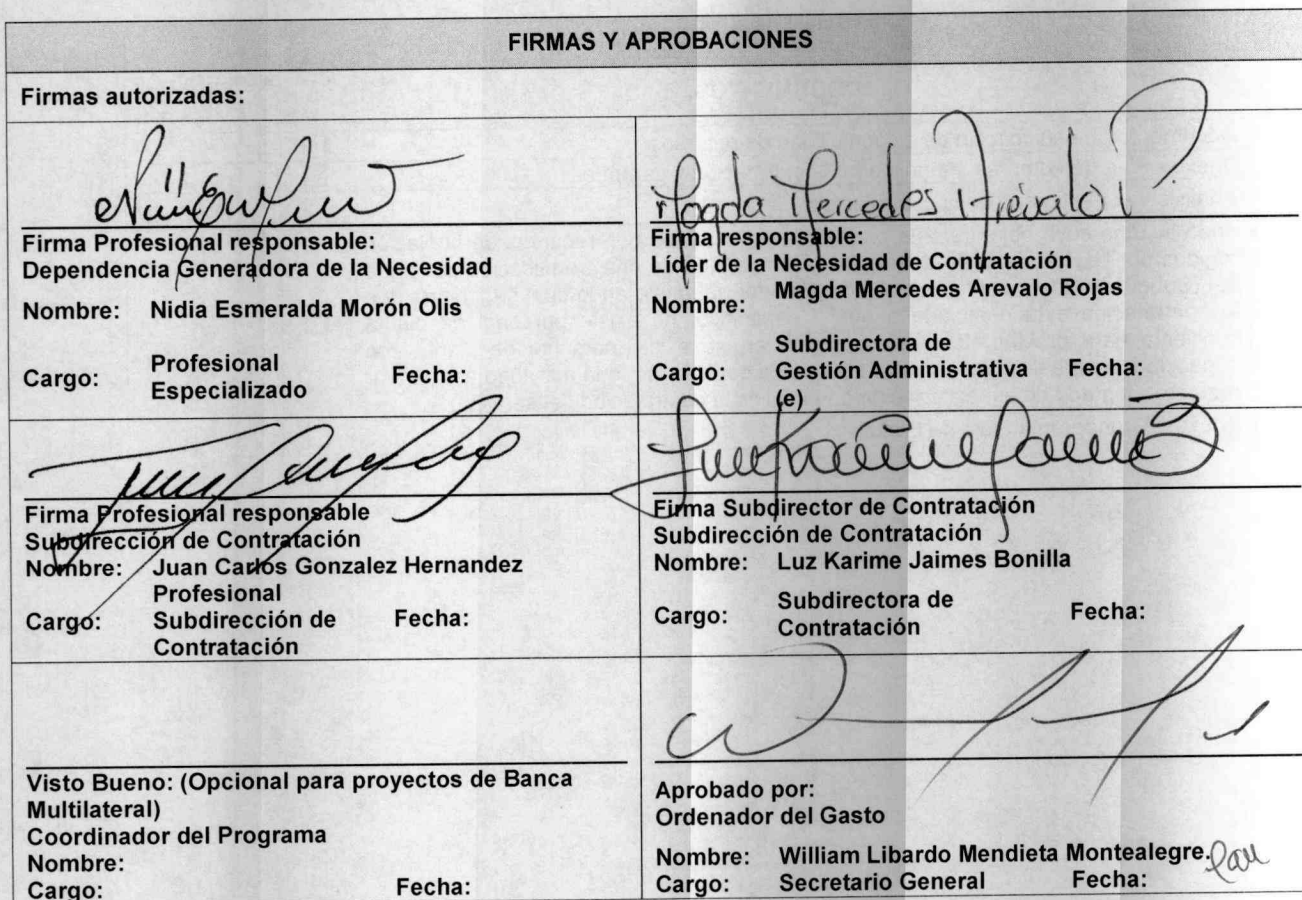 FIRMAS Y APROBACIONES
Firmas autorizadas:
Firma Profesional responsable:
Dependencia Generadora de la Necesidad
Nombre: Nidia Esmeralda Morón Olis
Cargo: Profesional Especializado Fecha:
Magda Mercedes Arévalo
Firma responsable:
Líder de la Necesidad de Contratación
Nombre: Magda Mercedes Arevalo Rojas
Cargo: Subdirectora de Gestión Administrativa (e) Fecha:
Firma Profesional responsable
Subdirección de Contratación
Nombre: Juan Carlos Gonzalez Hernandez
Cargo: Profesional Subdirección de Contratación Fecha:
Firma Subdirector de Contratación
Subdirección de Contratación
Nombre: Luz Karime Jaimes Bonilla
Cargo: Subdirectora de Contratación Fecha:
Visto Bueno: (Opcional para proyectos de Banca
Multilateral)
Coordinador del Programa
Nombre:
Cargo: Fecha:
Aprobado por:
Ordenador del Gasto
Nombre: William Libardo Mendieta Montealegre.
Cargo: Secretario General Fecha: